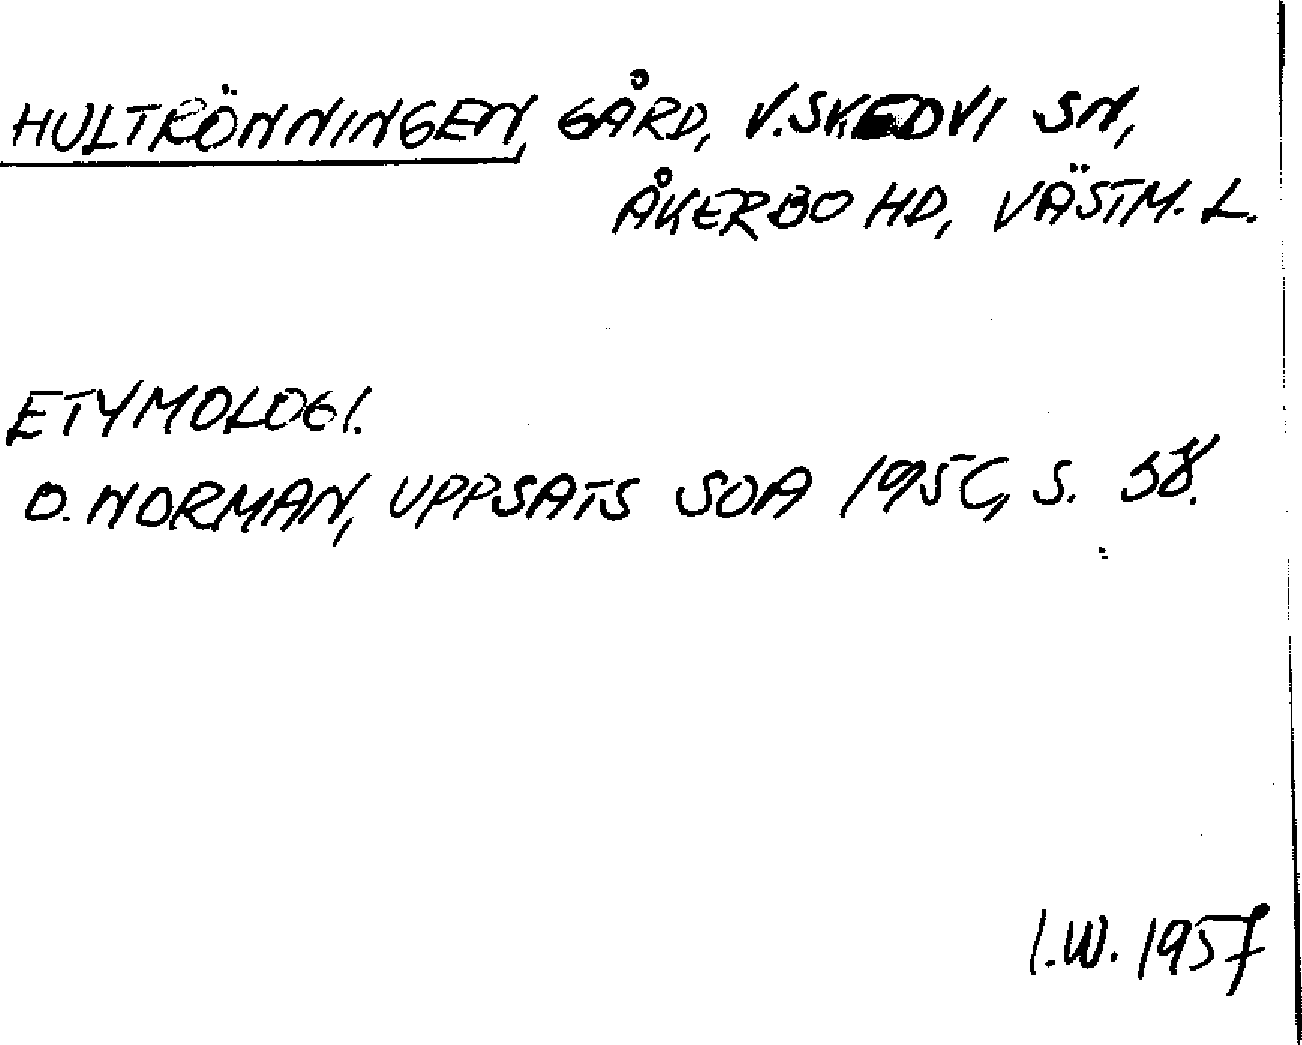 HULTRÖNNINGEN, GÅRD, V. SKEDVI SN,
ÅKERBO HD, VÄSTM. L.
ETYMOLOGI.
O. NORMAN, UPPSATS SOA 1956, S. 38.
I.W. 1957